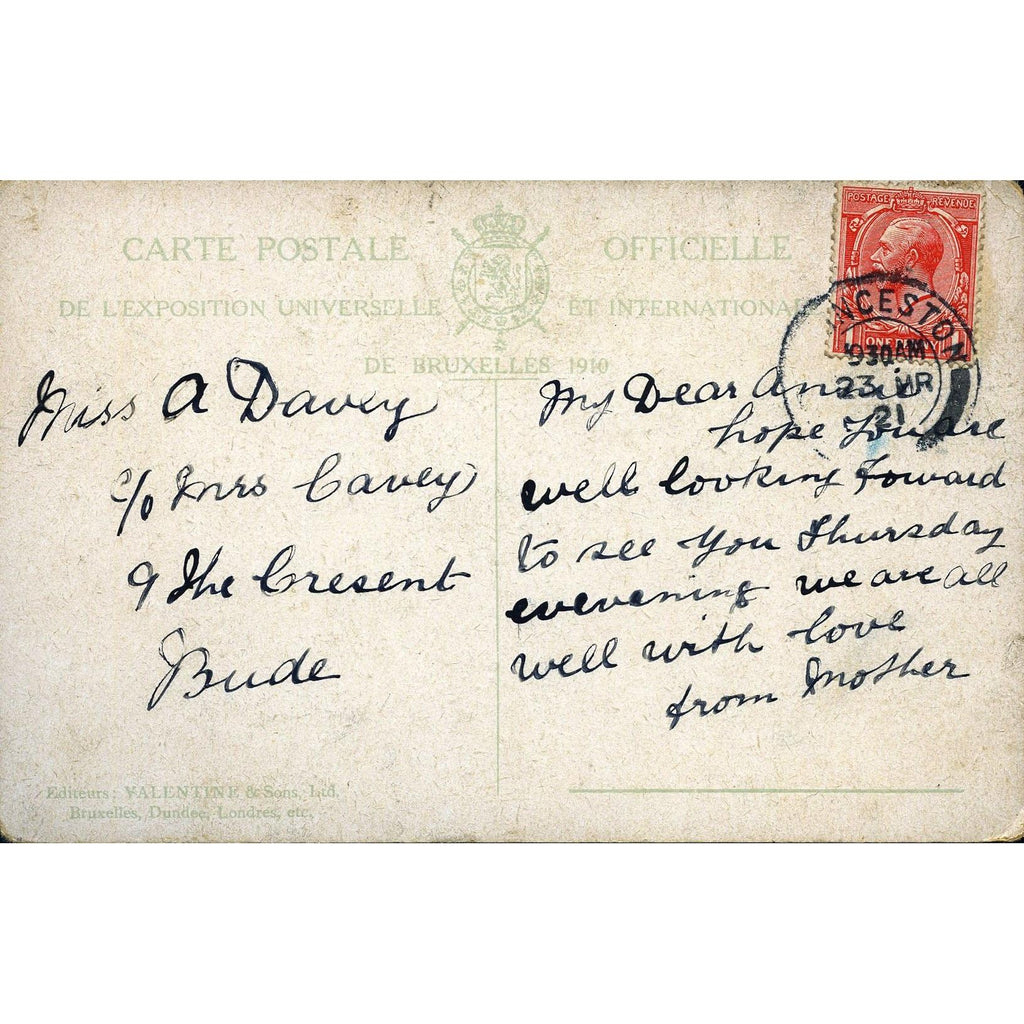 CARTE POSTALE OFFICIELLE
DE L'EXPOSITION UNIVERSELLE ET INTERNATIONALE
DE BRUXELLES 1910
POSTAGE REVENUE
ONE PENNY
NCESTON
930AM
23 MR
21
Miss A Davey
c/o Mrs Cavey
9 The Cresent
Bude
My Dear Annie
hope You are
well looking Foward
to see you Thursday
evevening we are all
well with love
from Mother
Editeurs: VALENTINE & Sons, Ltd.
Bruxelles, Dundee, Londres, etc.